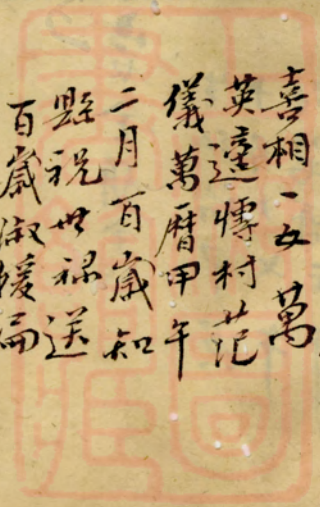 喜相一女萬
英適愽村范
儀萬曆甲午
二月百歲知
縣祝世祿送
百歲淑媛扁